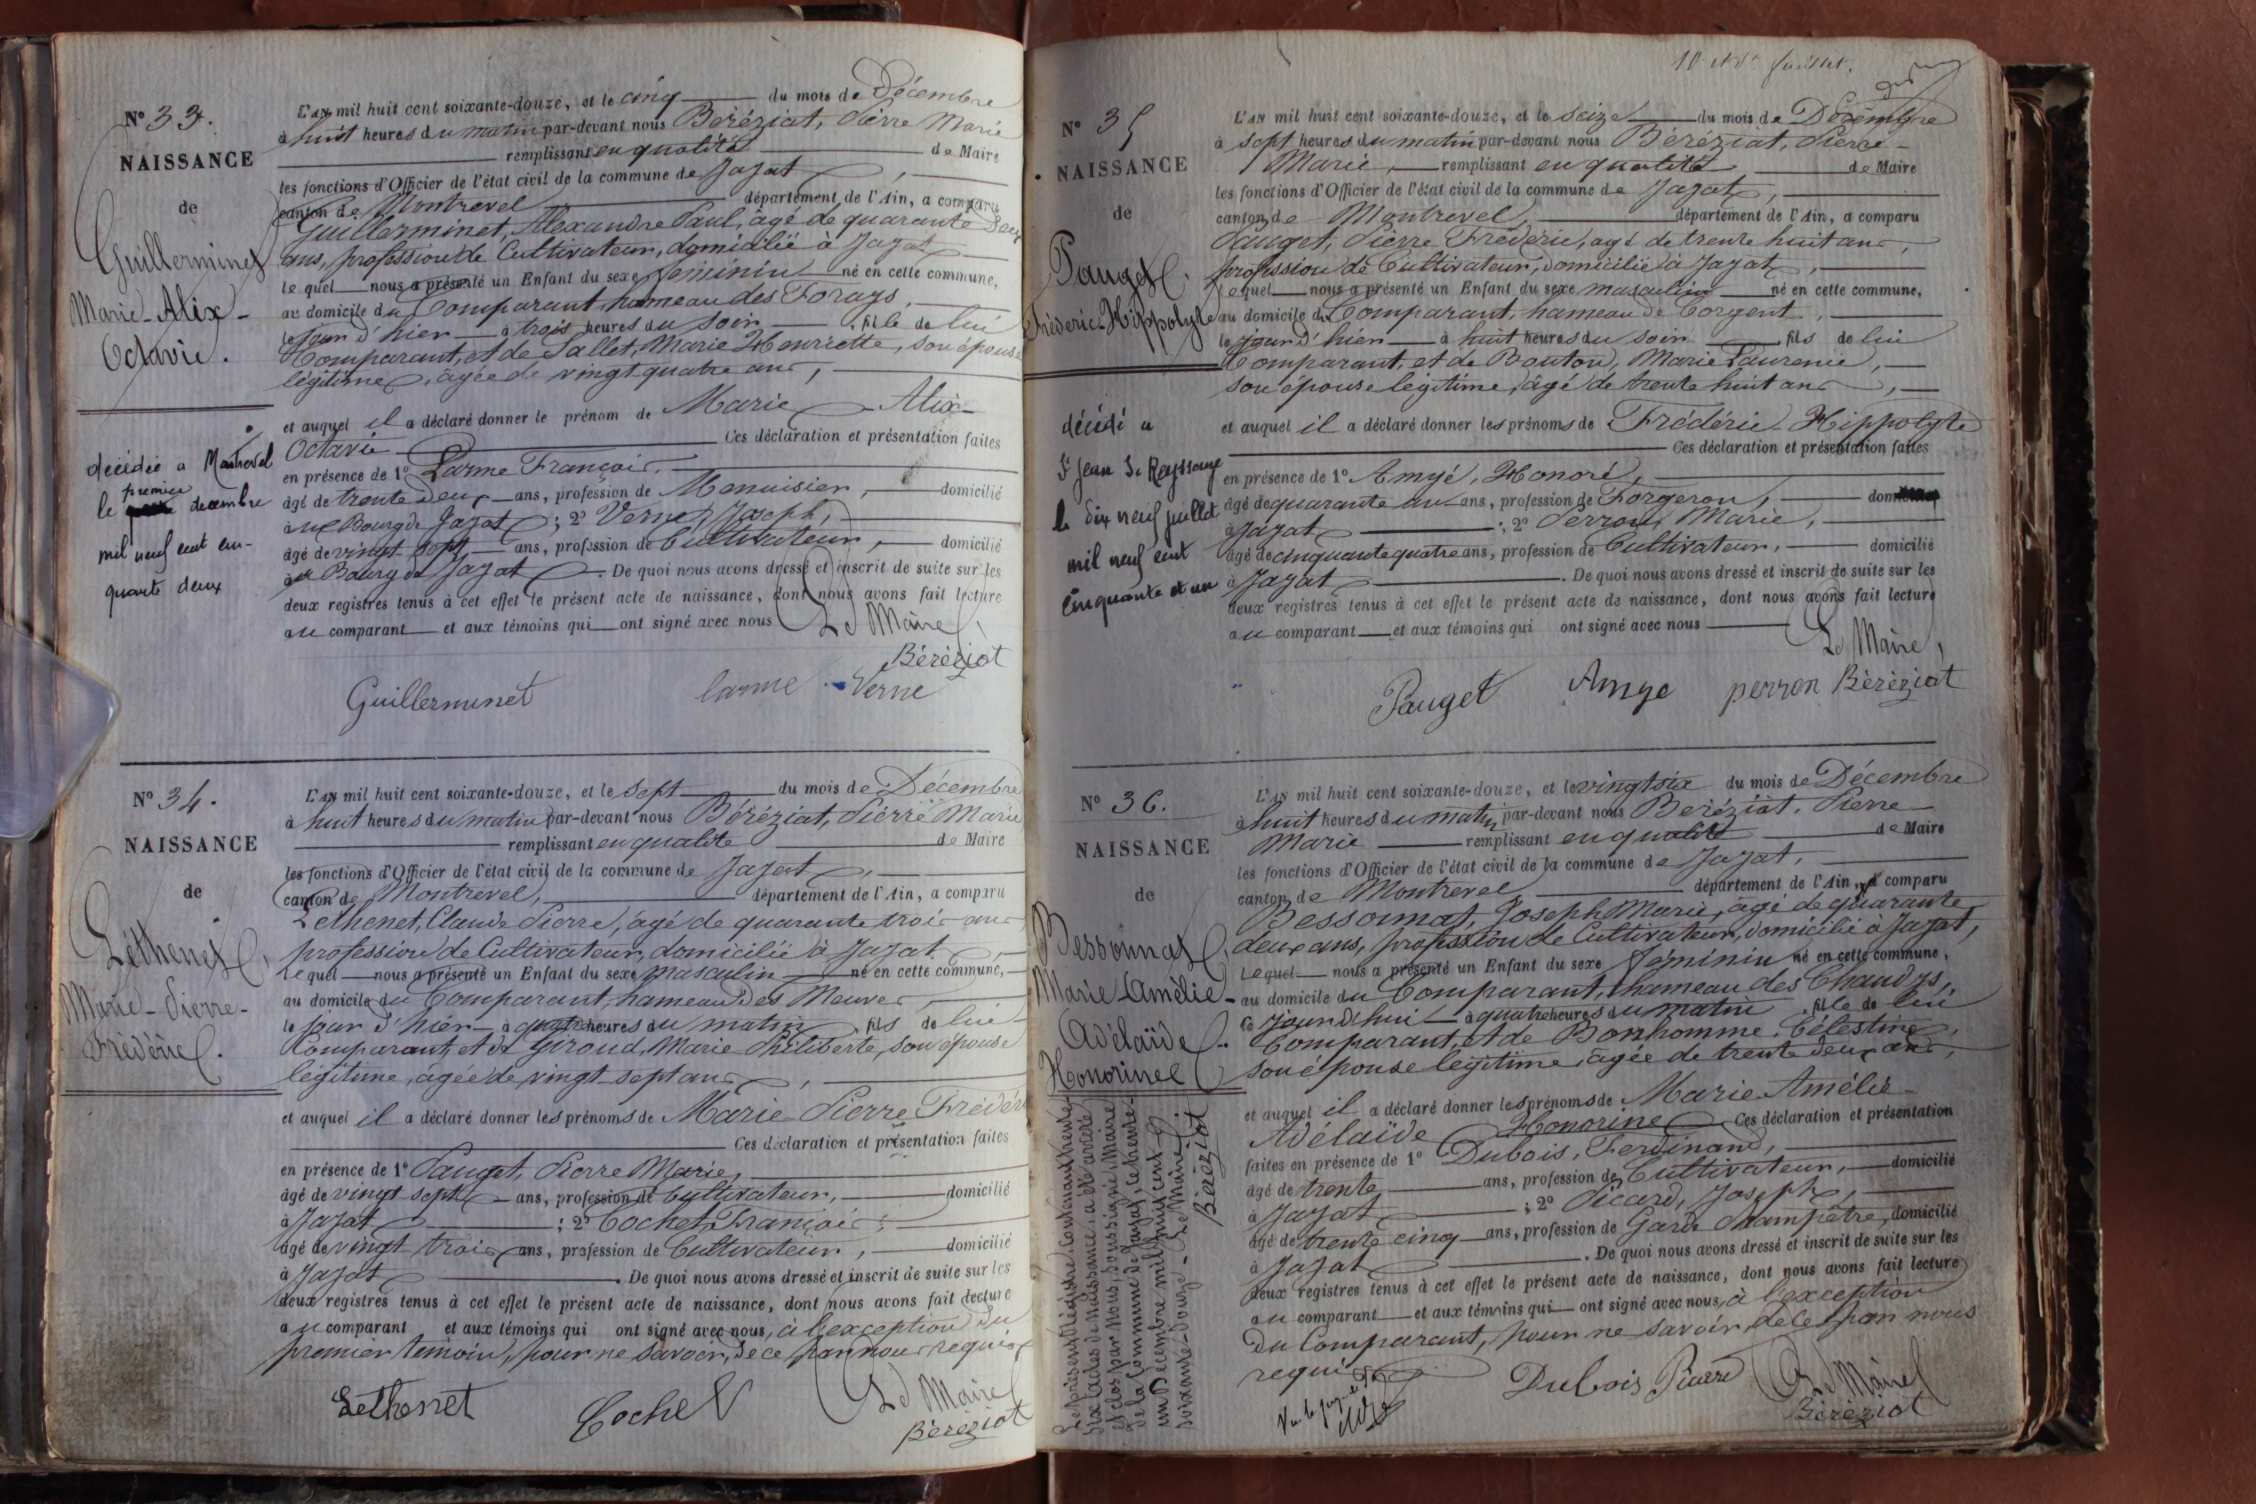 N° 33.
NAISSANCE
de
Guilleminet
Marie-Alix-
Octavie.
décédée a Montrevel
le premier decembre
mil neuf cent cin-
quante deux
L'AN mil huit cent soixante-douze, et le cinq du mois de Décembre
à huit heures du matin par-devant nous Béréziat, Pierre Marie
remplissant en qualité de Maire
les fonctions d'Officier de l'état civil de la commune de Jayat,
canton de Montrevel département de l'Ain, a comparu
Guillerminet, Alexandre Paul, âgé de quarante deux
ans, profession de Cultivateur, domicilié à Jayat
lequel nous a présenté un Enfant du sexe féminin né en cette commune,
au domicile du Comparant, hameau des Forays,
le jour d'hier à trois heures du soir fille de lui
Comparant, et de Sallet, Marie Henriette, son épouse
légitime, âgée de vingt quatre ans,
et auquel il a déclaré donner le prénom de Marie Alix-
Octavie Ces déclaration et présentation faites
en présence de 1° Larme François,
âgé de trente deux ans, profession de Menuisier, domicilié
au Bourg de Jayat ; 2° Verne, Joseph,
âgé de vingt sept ans, profession de Cultivateur, domicilié
au Bourg de Jayat. De quoi nous avons dressé et inscrit de suite sur les
deux registres tenus à cet effet le présent acte de naissance, dont nous avons fait lecture
au comparant et aux témoins qui ont signé avec nous Le Maire,
Béréziat
Guillerminet larme Verne
N° 34.
NAISSANCE
de
Léthenet,
Marie-Pierre-
Frédéric.
L'AN mil huit cent soixante-douze, et le sept du mois de Décembre
à huit heures du matin par-devant nous Béréziat, Pierre Marie
remplissant en qualité de Maire
les fonctions d'Officier de l'état civil de la commune de Jayat,
canton de Montrevel, département de l'Ain, a comparu
Lethenet, Claude Pierre, âgé de quarante trois ans
profession de Cultivateur, domicilié à Jayat
lequel nous a présenté un Enfant du sexe masculin né en cette commune,
au domicile du Comparant, hameau des Meuves
le jour d'hier à quatre heures du matin fils de lui
Comparant, et de Giroud, Marie Philiberte, son épouse
légitime, âgée de vingt sept ans,
et auquel il a déclaré donner les prénoms de Marie Pierre Frédéric
Ces déclaration et présentation faites
en présence de 1° Pauget, Pierre Marie,
âgé de vingt sept ans, profession de Cultivateur, domicilié
à Jayat ; 2° Cochet, François,
âgé de vingt trois ans, profession de Cultivateur, domicilié
à Jayat. De quoi nous avons dressé et inscrit de suite sur les
deux registres tenus à cet effet le présent acte de naissance, dont nous avons fait lecture
au comparant et aux témoins qui ont signé avec nous, à l'exception du
premier témoin, pour ne savoir, de ce par nous requis
Le Maire
Lethenet Cochet Béréziat
N° 35
NAISSANCE
de
Pauget.
Fréderic-Hippolyte
décédé a
St Jean S. Reyssouze
le dix neuf juillet
mil neuf cent
cinquante et un
L'AN mil huit cent soixante-douze, et le seize du mois de Décembre
à sept heures du matin par-devant nous Béréziat, Pierre-
Marie, remplissant en qualité de Maire
les fonctions d'Officier de l'état civil de la commune de Jayat,
canton de Montrevel, département de l'Ain, a comparu
Pauget, Pierre Frédéric, agé de trente huit ans,
profession de Cultivateur, domicilié à Jayat,
lequel nous a présenté un Enfant du sexe masculin né en cette commune,
au domicile du Comparant, hameau de Corgent,
le jour d'hier à huit heures du soir fils de lui
Comparant, et de Bouton, Marie Laurencie,
son épouse légitime, âgé de trente huit ans,
et auquel il a déclaré donner les prénoms de Frédéric Hippolyte
Ces déclaration et présentation faites
en présence de 1° Amyé, Honoré,
âgé de quarante un ans, profession de Forgeron,
à Jayat ; 2° Perron, Marie,
âgé de cinquante quatre ans, profession de Cultivateur, domicilié
à Jayat. De quoi nous avons dressé et inscrit de suite sur les
deux registres tenus à cet effet le présent acte de naissance, dont nous avons fait lecture
au comparant et aux témoins qui ont signé avec nous
Le Maire,
Pauget Amye perron Béréziat
N° 36.
NAISSANCE
de
Bessonnat,
Marie-Amélie-
Adélaïde-
Honorine
L'AN mil huit cent soixante-douze, et le vingt six du mois de Décembre
à huit heures du matin par-devant nous Béréziat, Pierre
Marie remplissant en qualité de Maire
les fonctions d'Officier de l'état civil de la commune de Jayat,
canton de Montrevel département de l'Ain, a comparu
Bessonnat, Joseph Marie, âgé de quarante
deux ans, profession de Cultivateur, domicilié à Jayat,
Lequel nous a présenté un Enfant du sexe féminin né en cette commune,
au domicile du Comparant, hameau des Chaudys,
ce jourd'hui à quatre heures du matin fille de lui
Comparant, et de Bonhomme, Célestine,
son épouse légitime, âgée de trente deux ans,
et auquel il a déclaré donner les prénoms de Marie Amélie-
Adélaïde Honorine Ces déclaration et présentation
faites en présence de 1° Dubois, Ferdinand,
âgé de trente ans, profession de Cultivateur, domicilié
à Jayat ; 2° Picard, Joseph,
âgé de trente cinq ans, profession de Garde champêtre, domicilié
à Jayat. De quoi nous avons dressé et inscrit de suite sur les
deux registres tenus à cet effet le présent acte de naissance, dont nous avons fait lecture
au comparant et aux témoins qui ont signé avec nous, à l'exception
du Comparant, pour ne savoir, de ce par nous
requis
Dubois Picard Le Maire
Béréziat
Le présent Régistre, contenant trente
six actes de naissances, a été arrêté
et clos par Nous, soussigné, Maire
de la Commune de Jayat, le trente
un Décembre mil huit cent
soixante-douze. Le Maire
Béréziat